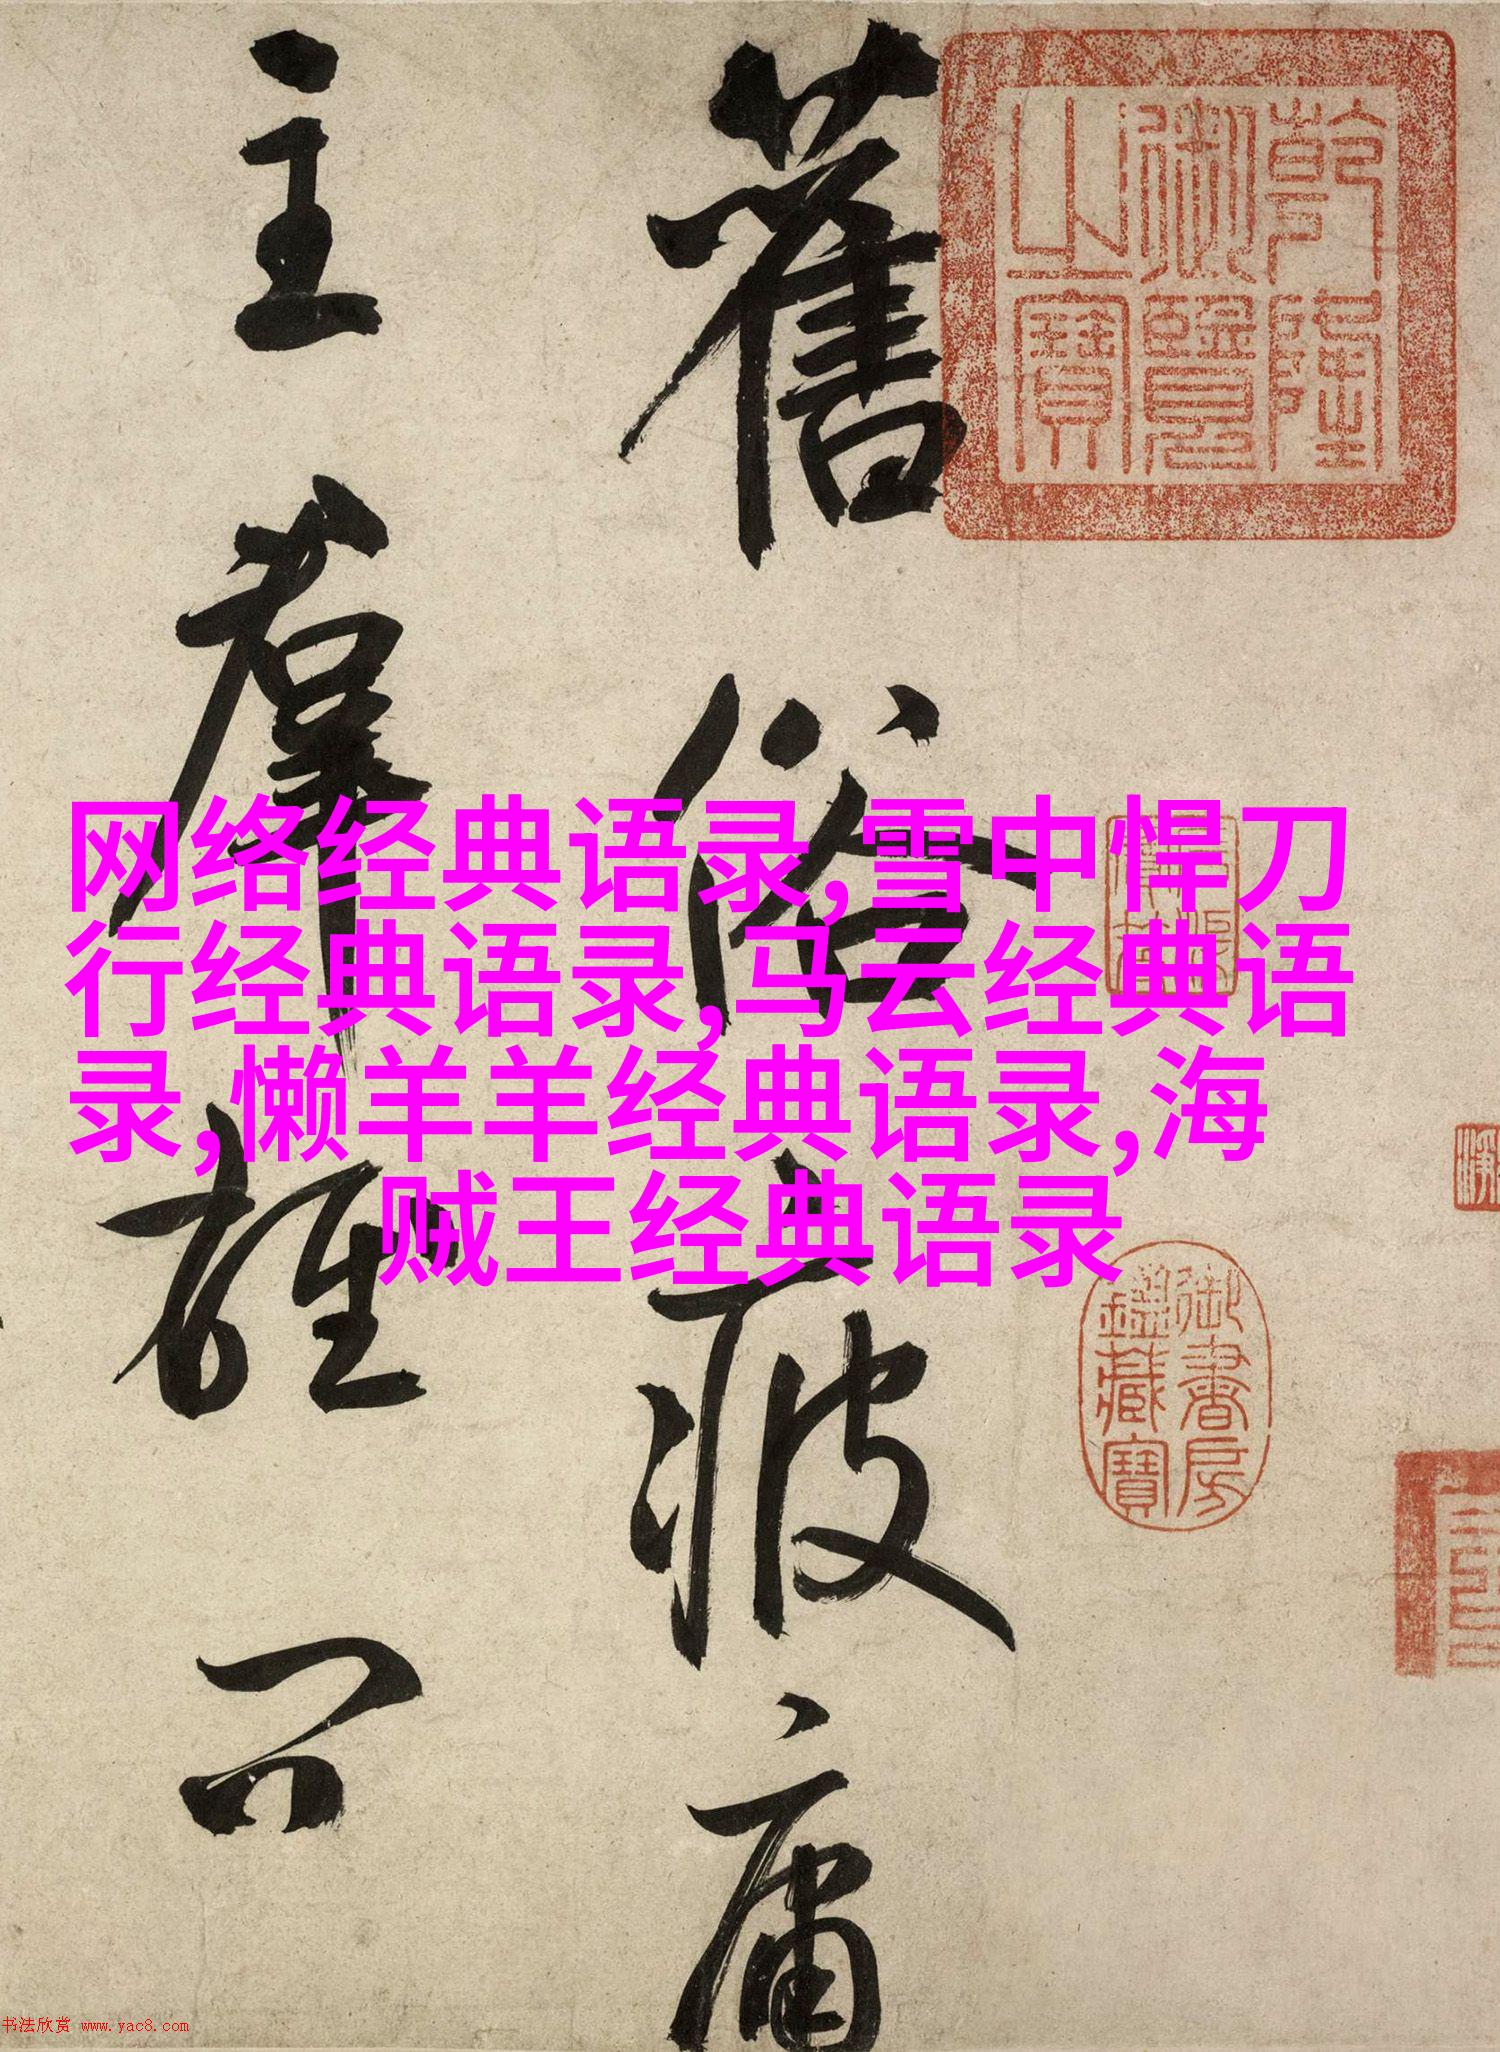 舊俗疲庸
主羣雄問
乾隆
御覽
之寶
网络经典语录,雪中悍刀
行经典语录,马云经典语
录,懒羊羊经典语录,海
贼王经典语录
御書房
鑑藏寶
书法欣赏 www.yac8.com